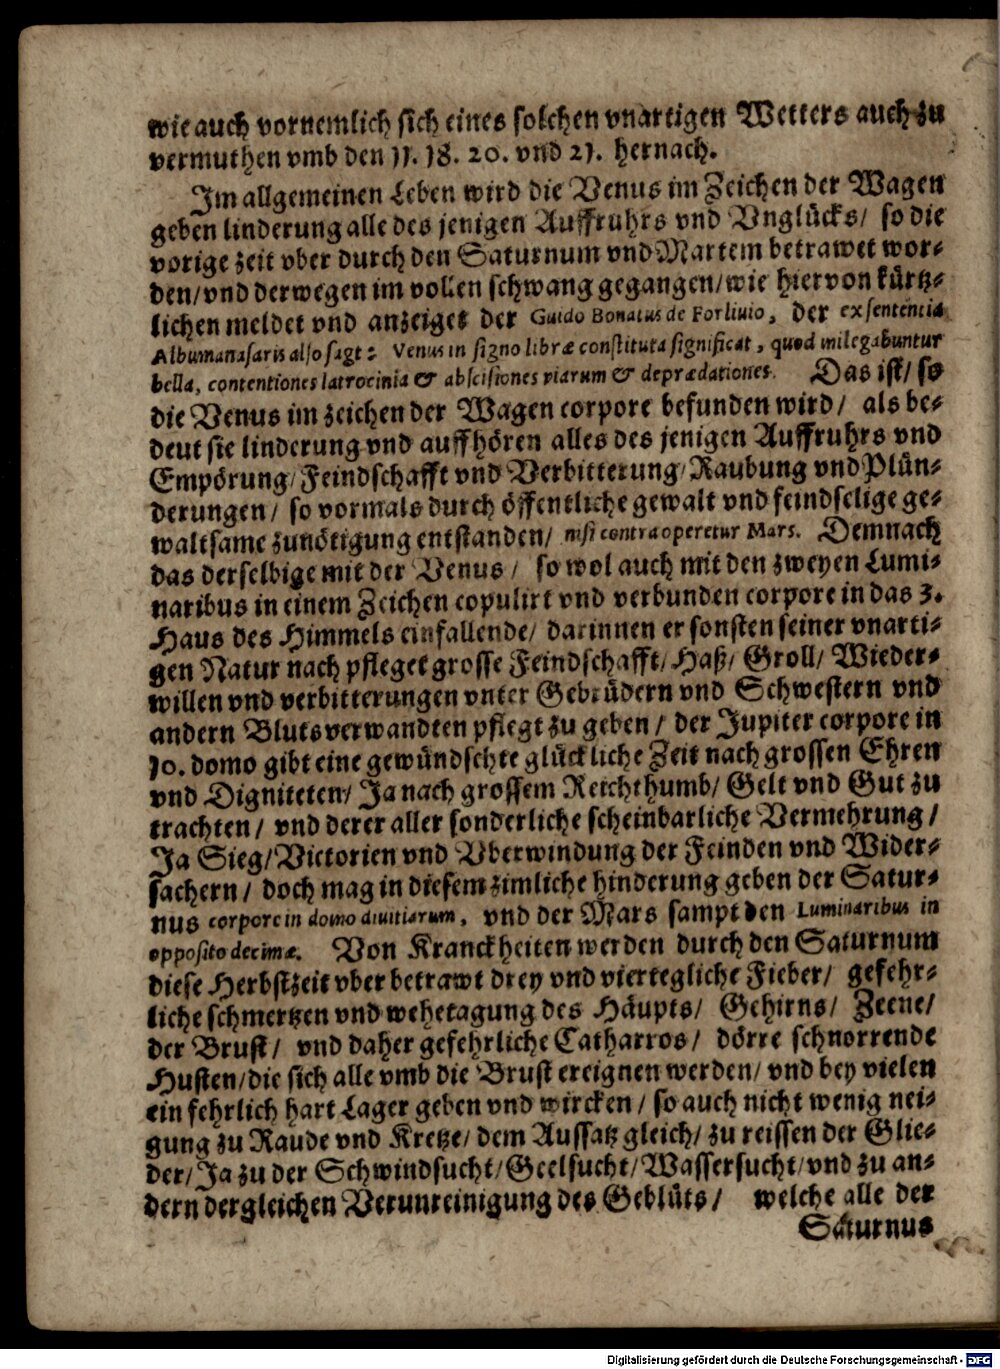 wie auch vornemlich sich eines solchen vnartigen Wetters auch zu
vermuthen vmb den 17. 18. 20. vnd 21. hernach.
Im allgemeinen Leben wird die Venus im Zeichen der Wagen
geben linderung alle des jenigen Auffruhrs vnd Vnglücks/ so die
vorige zeit vber durch den Saturnum vnd Martem betrawet wor-
den/ vnd derwegen im vollen schwang gegangen/ wie hiervon kürtz-
lichen meldet vnd anzeiget der Guido Bonatus de Forliuio, der ex sententia
Albumanasaris also sagt: Venus in signo libræ constituta significat, quod mitegabuntur
bella, contentiones latrocinia & abscisiones viarum & deprædationes. Das ist/ so
die Venus im zeichen der Wagen corpore befunden wird/ als be-
deut sie linderung vnd auffhören alles des jenigen Auffruhrs vnd
Empörung/ Feindschafft vnd Verbitterung/ Raubung vnd Plün-
derungen/ so vormals durch öffentliche gewalt vnd feindselige ge-
waltsame zunötigung entstanden/ nisi contra operetur Mars. Demnach
das derselbige mit der Venus/ so wol auch mit den zweyen Lumi-
naribus in einem Zeichen copulirt vnd verbunden corpore in das 3.
Haus des Himmels einfallende/ darinnen er sonsten seiner vnarti-
gen Natur nach pfleget grosse Feindschafft/ Haß/ Groll/ Wieder-
willen vnd verbitterungen vnter Gebrüdern vnd Schwestern vnd
andern Blutsverwandten pflegt zu geben/ der Jupiter corpore in
10. domo gibt eine gewündschte glückliche Zeit nach grossen Ehren
vnd Digniteten/ Ja nach grossem Reichthumb/ Gelt vnd Gut zu
trachten/ vnd derer aller sonderliche scheinbarliche Vermehrung/
Ja Sieg/ Victorien vnd Vberwindung der Feinden vnd Wider-
sachern/ doch mag in diesem zimliche hinderung geben der Satur-
nus corpore in domo diuitiarum, vnd der Mars sampt den Luminaribus in
opposito decimæ. Von Kranckheiten werden durch den Saturnum
diese Herbstzeit vber betrawt drey vnd viertegliche Fieber/ gefehr-
liche schmertzen vnd wehetagung des Häupts/ Gehirns/ Zeene/
der Brust/ vnd daher gefehrliche Catharros/ dörre schnorrende
Husten/ die sich alle vmb die Brust ereignen werden/ vnd bey vielen
ein fehrlich hart Lager geben vnd wircken/ so auch nicht wenig nei-
gung zu Raude vnd Kretze/ dem Aussatz gleich/ zu reissen der Glie-
der/ Ja zu der Schwindsucht/ Geelsucht/ Wassersucht/ vnd zu an-
dern dergleichen Verunreinigung des Geblüts/ welche alle der
Saturnus
Digitalisierung gefördert durch die Deutsche Forschungsgemeinschaft - DFG